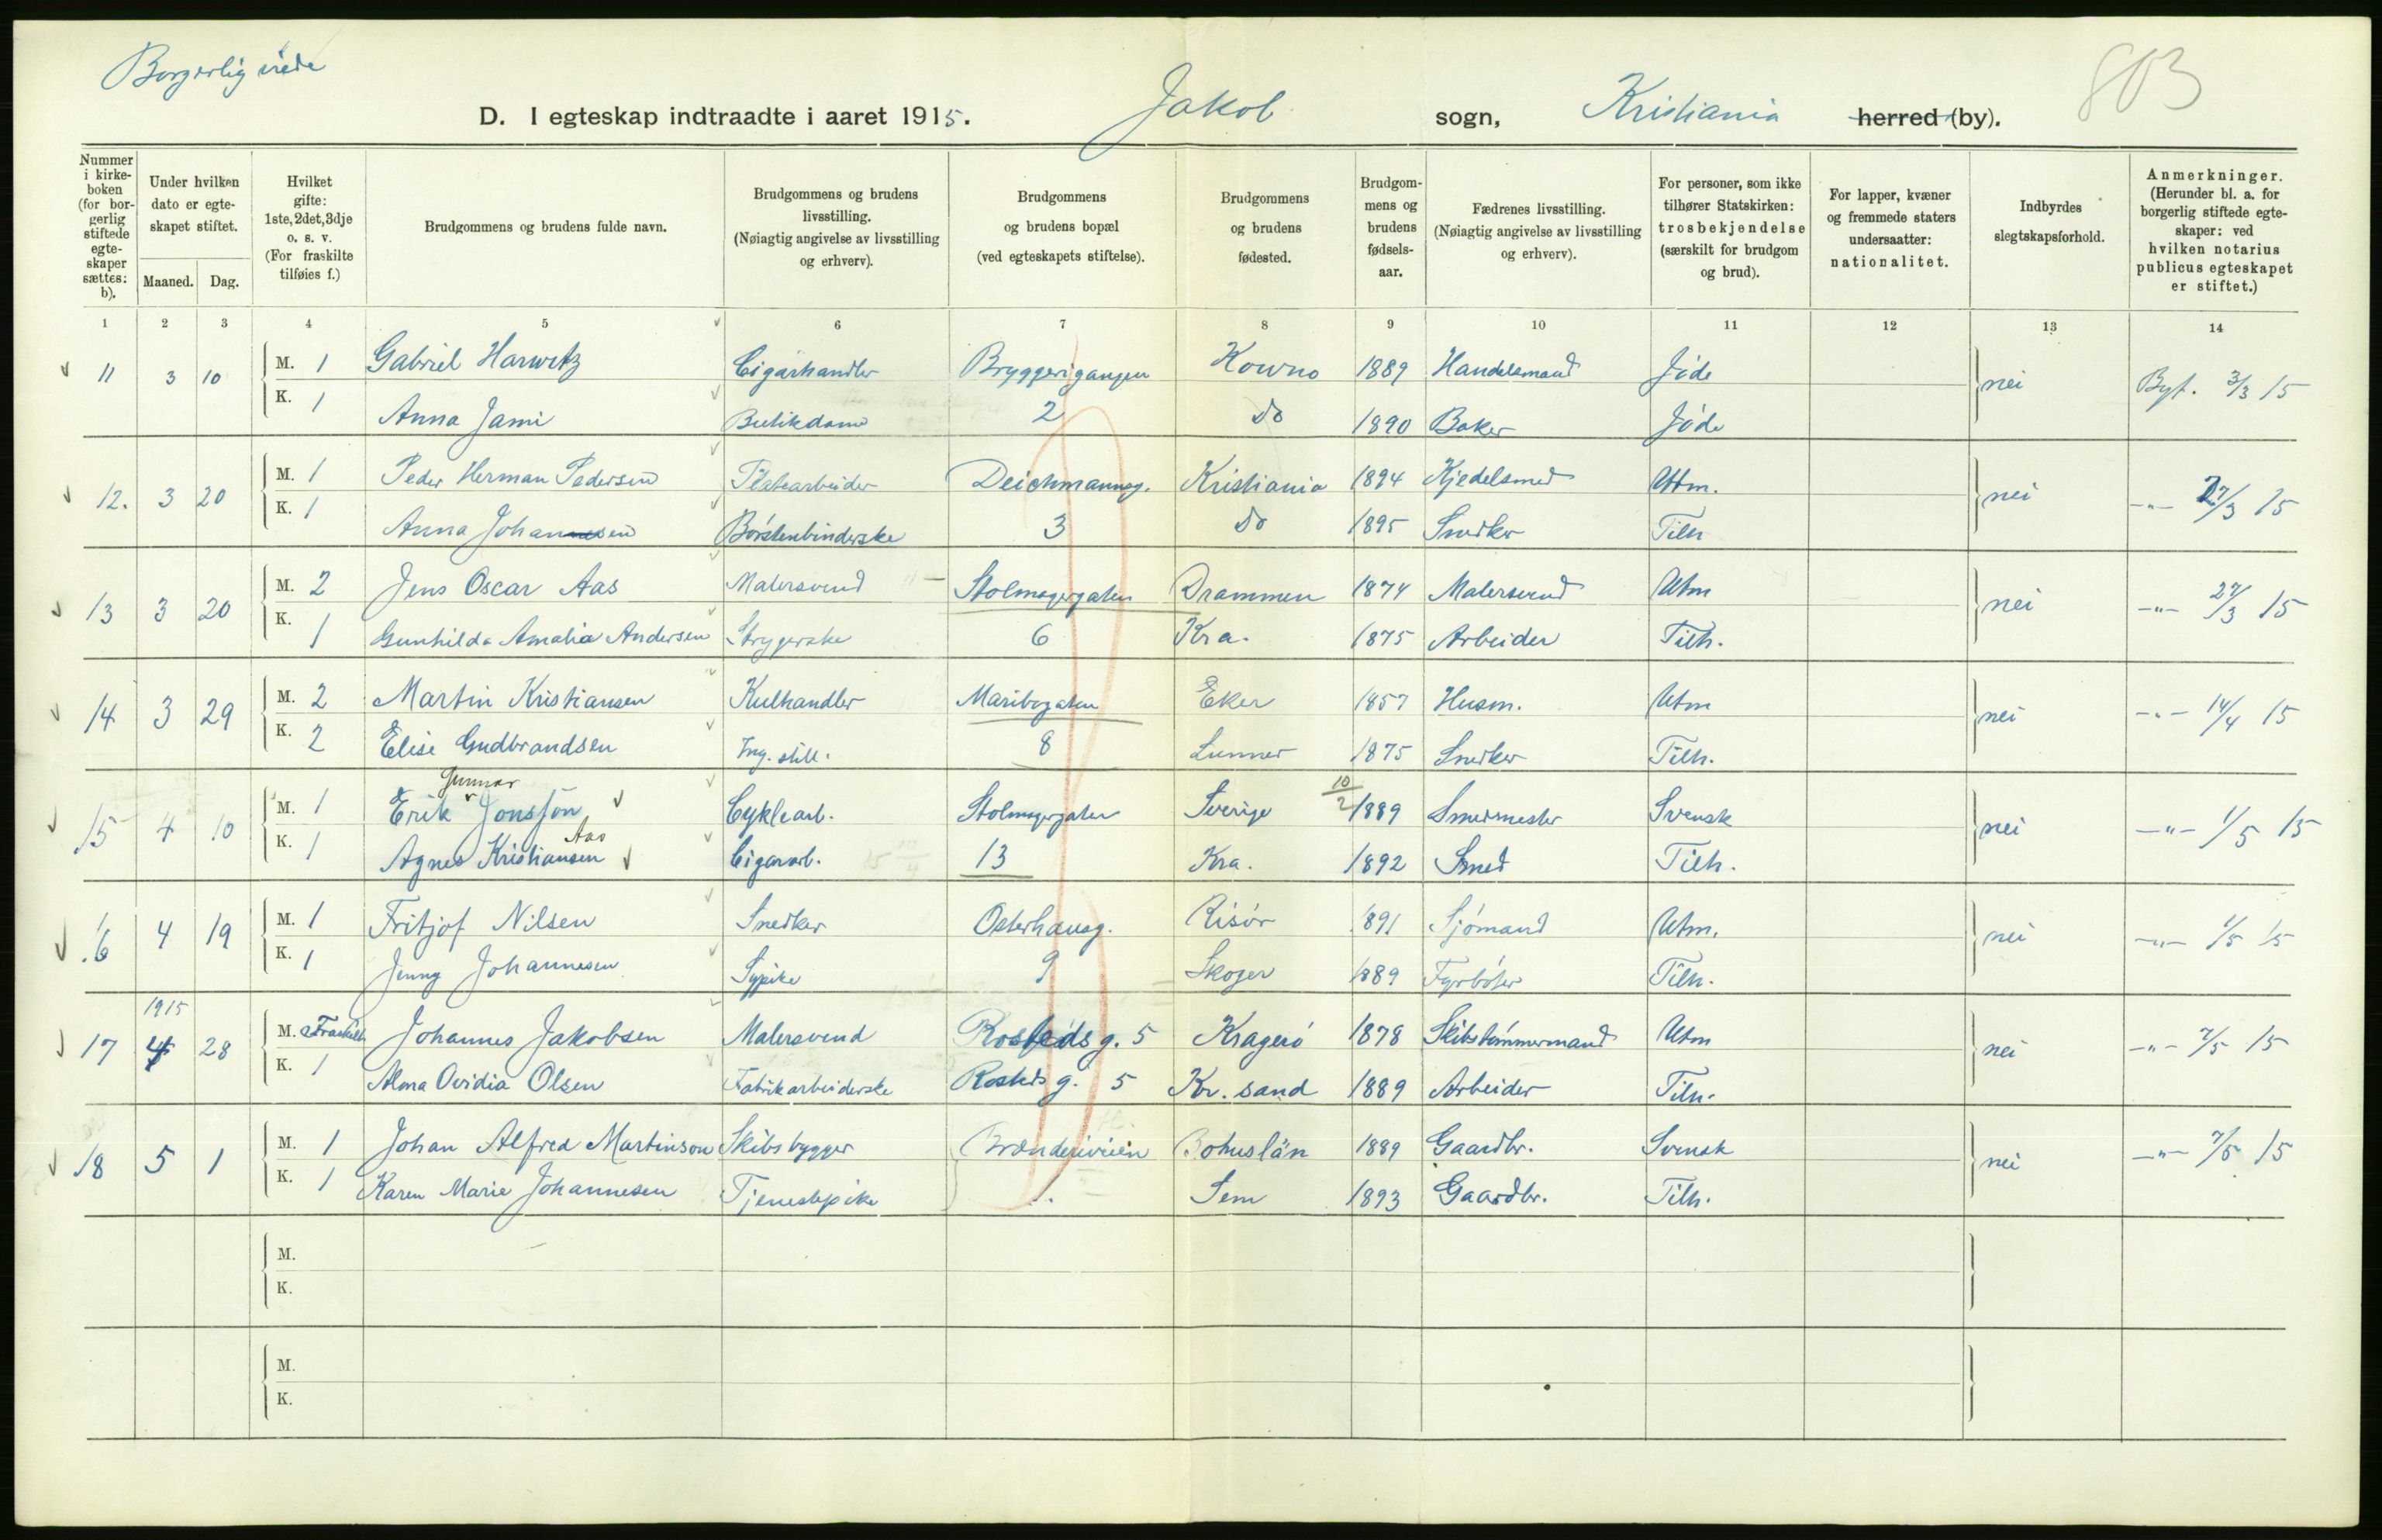 Borgerlig viede
803
D. I egteskap indtraadte i aaret 1915. Jakob sogn, Kristiania herred (by).
Nummer i kirkeboken (for borgerlig stiftede egteskaper sættes: b).
Under hvilken dato er egteskapet stiftet.
Maaned. Dag.
Hvilket gifte: 1ste, 2det, 3dje o. s. v. (For fraskilte tilføies f.)
Brudgommens og brudens fulde navn.
Brudgommens og brudens livsstilling. (Nøiagtig angivelse av livsstilling og erhverv).
Brudgommens og brudens bopæl (ved egteskapets stiftelse).
Brudgommens og brudens fødested.
Brudgommens og brudens fødselsaar.
Fædrenes livsstilling. (Nøiagtig angivelse av livsstilling og erhverv).
For personer, som ikke tilhører Statskirken: trosbekjendelse (særskilt for brudgom og brud).
For lapper, kvæner og fremmede staters undersaatter: nationalitet.
Indbyrdes slegtskapsforhold.
Anmerkninger. (Herunder bl. a. for borgerlig stiftede egteskaper: ved hvilken notarius publicus egteskapet er stiftet.)
1 2 3 4 5 6 7 8 9 10 11 12 13 14
11 3 10 M. 1 Gabriel Harwitz Cigarhandler Bryggerigangen Kowno 1889 Handelsmand Jøde nei Byf. 3/3 15
K. 1 Anna Jami Butikdame 2 Do 1890 Baker Jøde
12. 3 20 M. 1 Peder Herman Pedersen Platearbeider Deichmannsg. Kristiania 1894 Kjedelsmed Utm. nei —"— 27/3 15
K. 1 Anna Johannesen Børstenbinderske 3 Do 1895 Snedker Tilh
13 3 20 M. 2 Jens Oscar Aas Malersvend Stolmagergaten Drammen 1874 Malersvend Utm nei —"— 27/3 15
K. 1 Gunhilda Amalia Andersen Strygerske 6 Kra. 1875 Arbeider Tilh.
14 3 29 M. 2 Martin Kristiansen Kulhandler Maribogaten Eker 1857 Husm. Utm nei —"— 14/4 15
K. 2 Elise Gudbrandsen Ing. still. 8 Lunner 1875 Snedker Tilh.
15 4 10 M. 1 Erik Gunnar Jonsson Cyklearb. Stolmagergaten Sverige 10/2 1889 Smedmester Svensk nei —"— 1/5 15
K. 1 Agnes Kristiansen Aas Cigararb. 13 Kra. 1892 Smed Tilh.
16 4 19 M. 1 Fritjof Nilsen Snedker Osterhausg. Risør 1891 Sjømand Utm. nei —"— 1/5 15
K. 1 Jenny Johannesen Sypike 9 Skoger 1889 Fyrbøter Tilh.
1915
17 4 28 M. 2 Fraskilt Johannes Jakobsen Malersvend Rostedsg. 5 Kragerø 1878 Skibstømmermand Utm nei —"— 7/5 15
K. 1 Alma Ovidia Olsen Fabrikarbeiderske Rostedsg. 5 Kr. sand 1889 Arbeider Tilh.
18 5 1 M. 1 Johan Alfred Martinson Skibsbygger Brænderiveien Bohuslän 1889 Gaardbr. Svensk nei —"— 7/5 15
K. 1 Karen Marie Johannesen Tjenestepike Sem 1893 Gaardbr. Tilh.
M.
K.
M.
K.